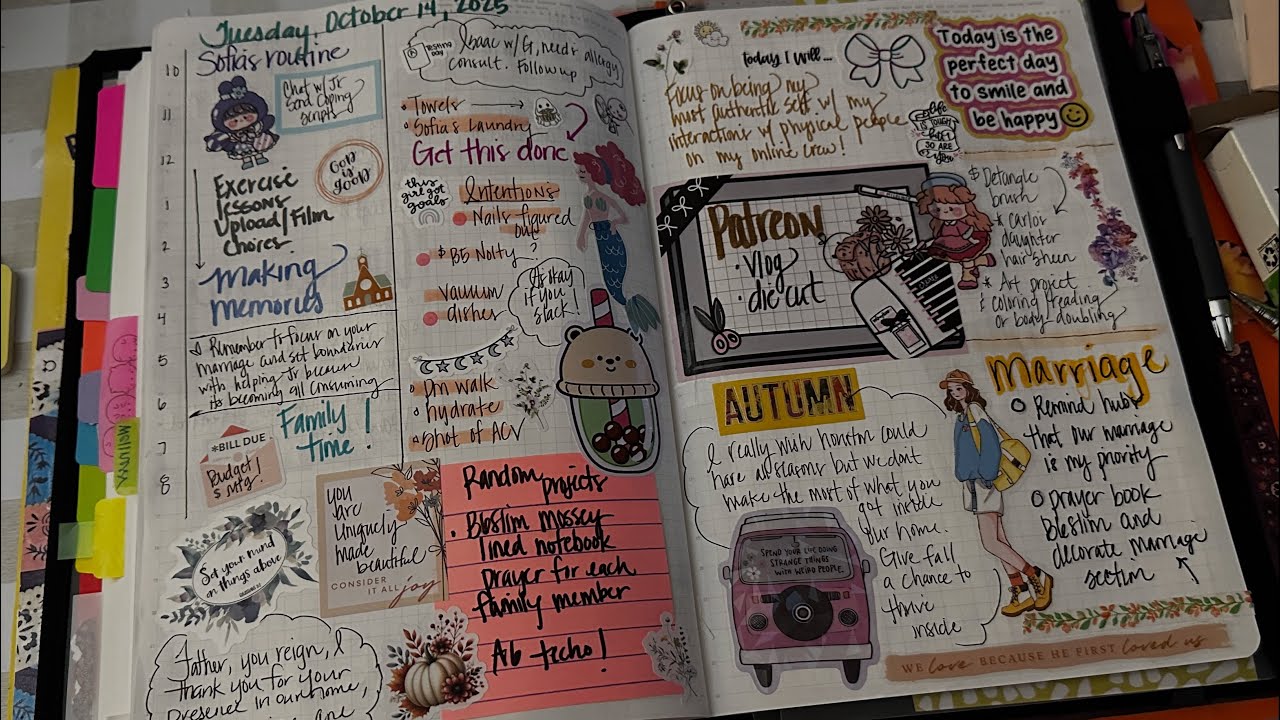 Tuesday, October 14, 2025
10
11
12
1
2
3
4
5
6
7
8
Sofia's routine
Chat w/ Jr
Send Coping
scripts
GOD is GOOD
Exercise
lessons
Upload/Film
Chores
Making
memories
Remember to focus on your
marriage and set boundaries
with helping to because
its becoming all consuming
Family
Time!
*BILL DUE
Budget!
$ mtg!
Set your mind
on things above
you
are
uniquely
made
beautiful
CONSIDER
IT ALL joy
Father, you reign, I
thank you for your
presence in our home,
Isaac w/ G, needs allergy
consult. Follow up
Towels
Sofia's Laundry
Get this done
this
girl got
goals
Intentions
Nails figured
out
$ B5 Nolty?
vacuum
dishes
It's okay
if you
slack!
Dn walk
hydrate
Shot of ACV
Random projects
Bleslim mossey
lined notebook
prayer for each
family member
A6 techo!
Today I Will...
Focus on being my
most authentic self w/ my
interactions w/ physical people
on my online crew!
Today is the
perfect day
to smile and
be happy
life
is tough
but
so are
you
Patreon
Vlog
die cut
$ Detangle
brush
* Carlos
daughter
hair sheen
* Art project
& coloring/reading
or body doubling
AUTUMN
I really wish houston could
have all seasons but we dont
make the most of what you
got inside
our home.
Give fall
a chance to
thrive
inside
SPEND YOUR LIFE DOING
STRANGE THINGS
WITH WEIRD PEOPLE.
Marriage
Remind hubs
that our marriage
is my priority
prayer book
Bleslim and
decorate marriage
section
WE love BECAUSE HE FIRST loved us